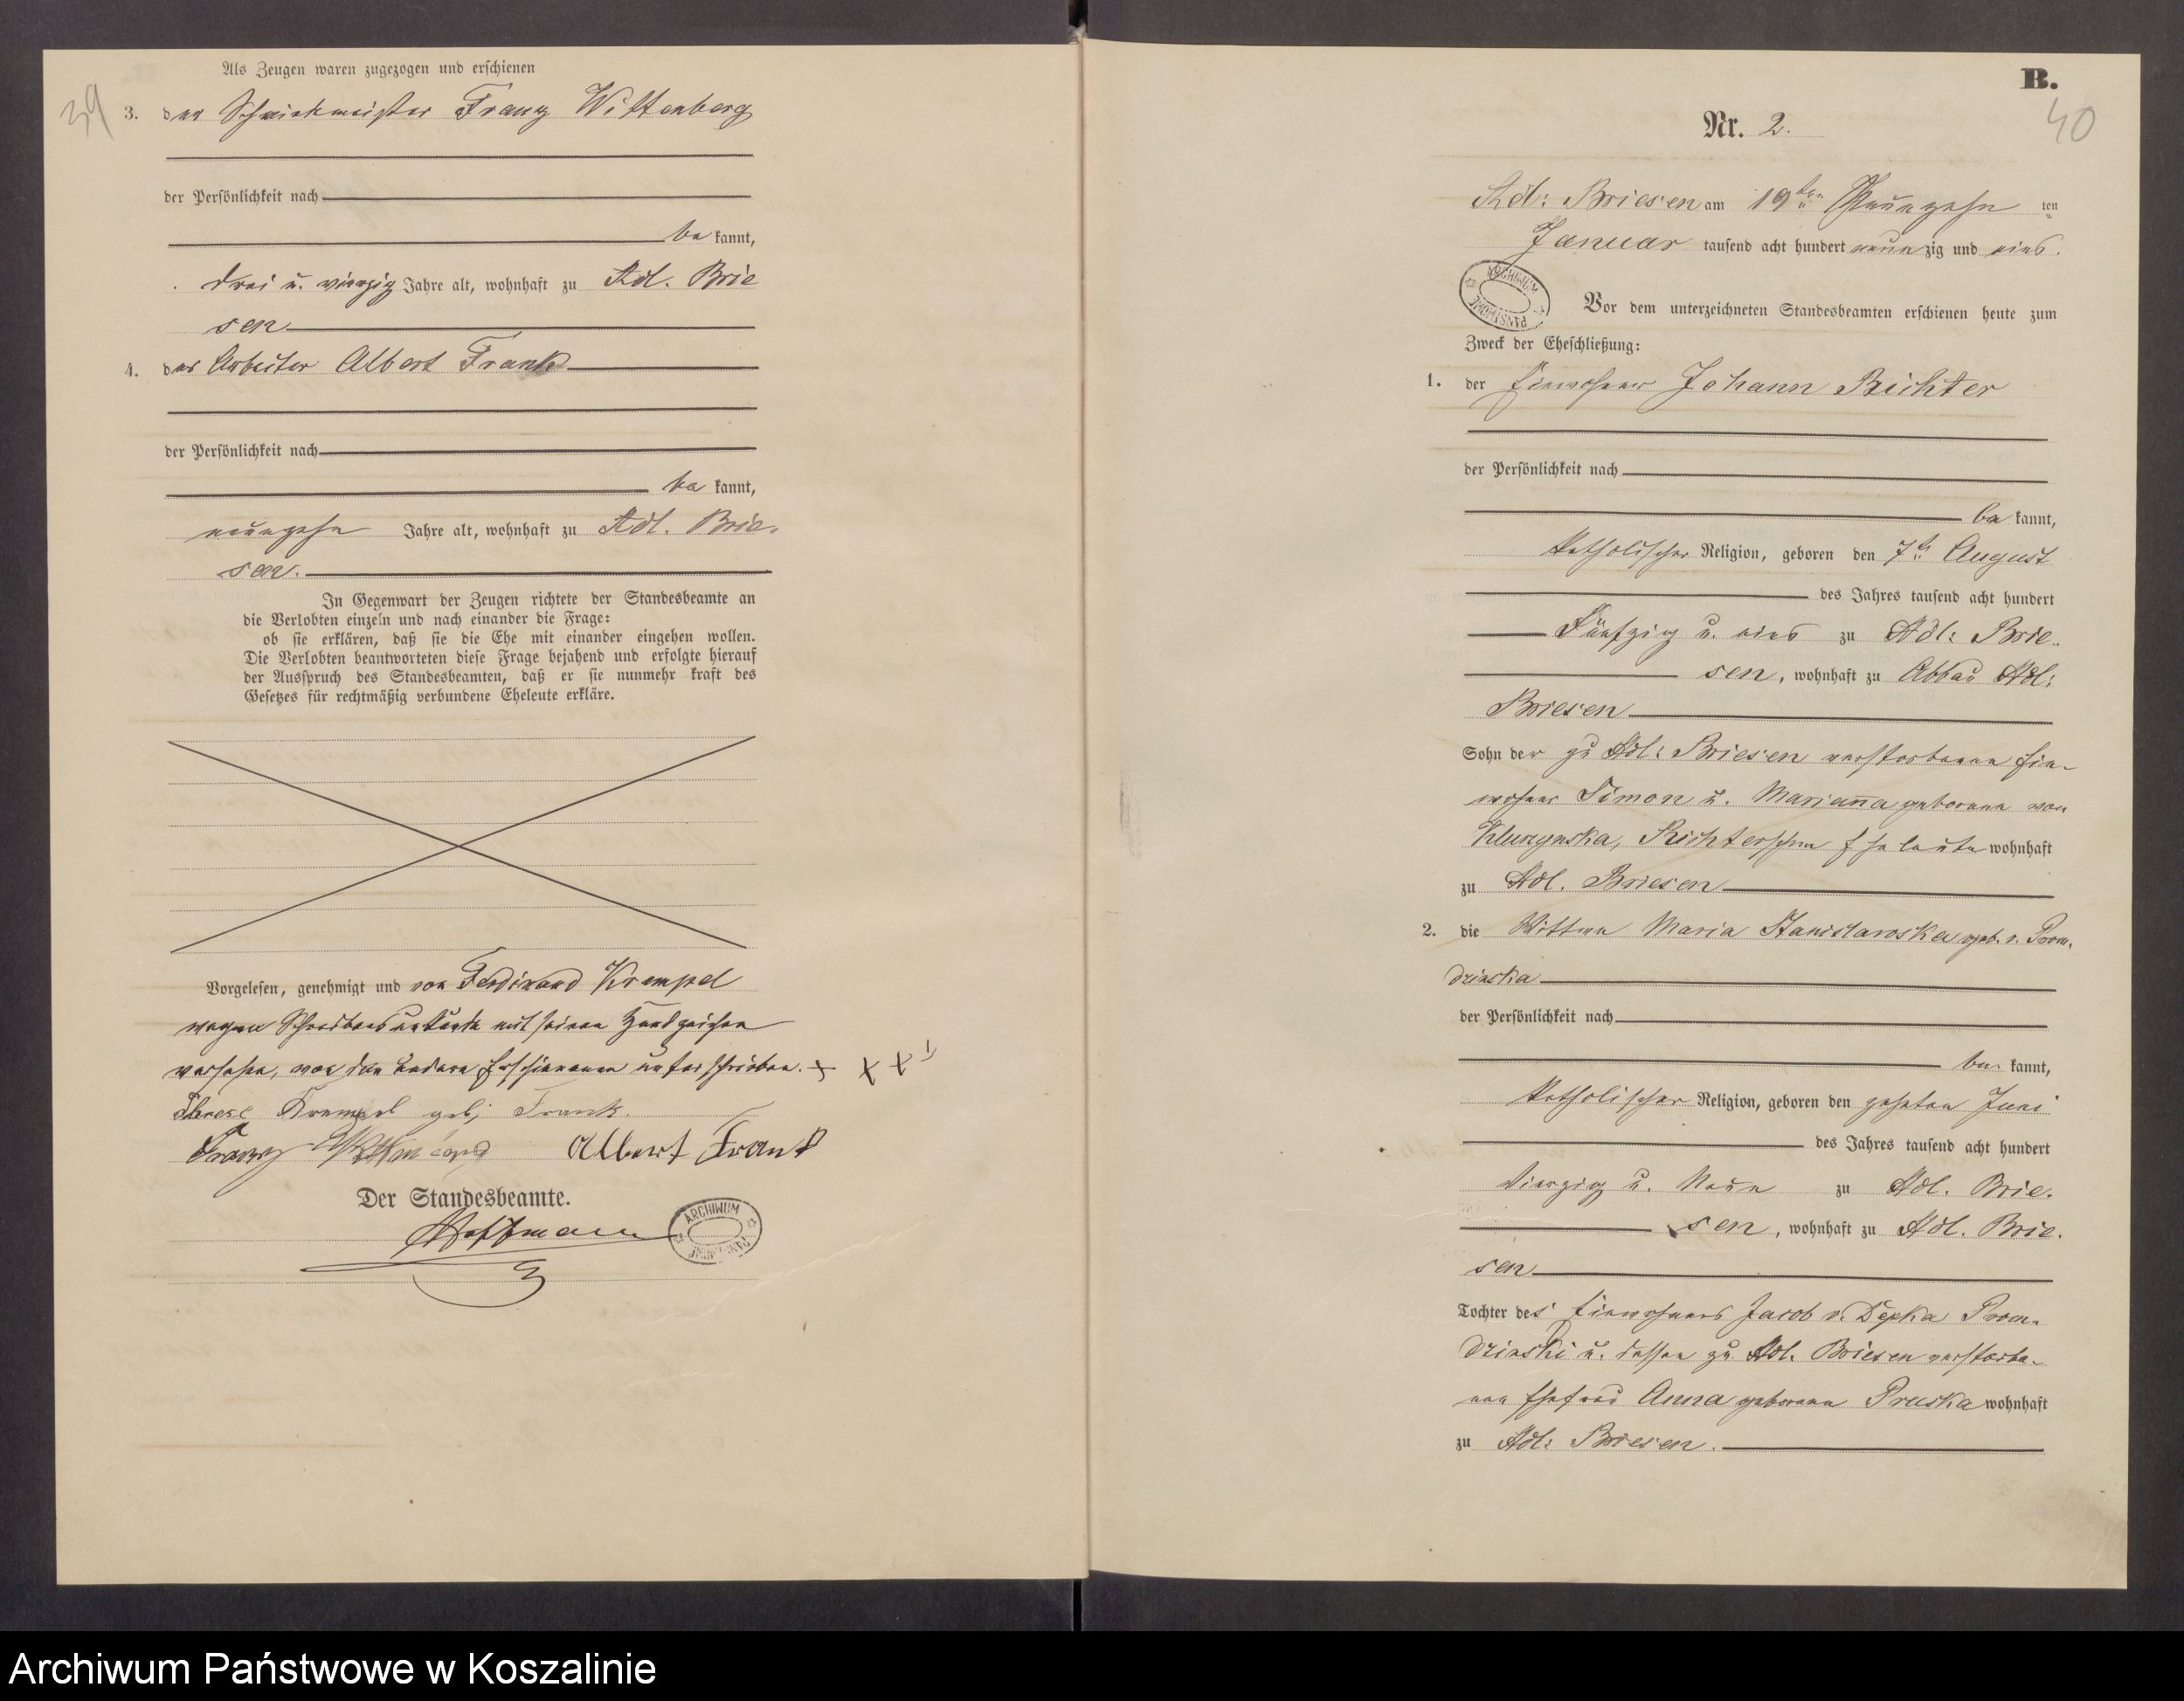 39
Als Zeugen waren zugezogen und erschienen
3. der Schmiedemeister Franz Wittenberg
der Persönlichkeit nach
be kannt,
drei u. vierzig Jahre alt, wohnhaft zu Adl. Brie
sen
4. der Arbeiter Albert Frank
der Persönlichkeit nach
be kannt,
neunzehn Jahre alt, wohnhaft zu Adl. Brie-
sen.
In Gegenwart der Zeugen richtete der Standesbeamte an
die Verlobten einzeln und nach einander die Frage:
ob sie erklären, daß sie die Ehe mit einander eingehen wollen.
Die Verlobten beantworteten diese Frage bejahend und erfolgte hierauf
der Ausspruch des Standesbeamten, daß er sie nunmehr kraft des
Gesetzes für rechtmäßig verbundene Eheleute erkläre.
Vorgelesen, genehmigt und von Ferdinand Krempel
wegen Schreibensunkunde mit seinem Handzeichen
versehen, von den andern Erschienenen unterschrieben. + x x
Therese Krempel geb; Frank.
Franz Wittenberg Albert Frank
Der Standesbeamte.
Hoffmann
ARCHIWUM
B.
40
Nr. 2.
Adl: Briesen am 19ten Neunzehn ten
Januar tausend acht hundert neun zig und eins.
ARCHIWUM PAŃSTWOWE
Vor dem unterzeichneten Standesbeamten erschienen heute zum
Zweck der Eheschließung:
1. der Einwohner Johann Richter
der Persönlichkeit nach
be kannt,
katholischer Religion, geboren den 7t. August
des Jahres tausend acht hundert
Fünfzig u. eins zu Adl: Brie-
sen, wohnhaft zu Abbau Adl:
Briesen
Sohn der zu Adl: Briesen verstorbenen Ein-
wohner Simon u. Marianna geborene von
Richterschen Eheleute wohnhaft
zu Adl. Briesen
2. die Wittwe Maria Stanislawska geb. v. Prom-
dzinska
der Persönlichkeit nach
be. kannt,
katholischer Religion, geboren den zehnten Juni
des Jahres tausend acht hundert
Vierzig u. Neun zu Adl. Brie-
sen, wohnhaft zu Adl. Brie-
sen
Tochter des Einwohners Jacob v. Depka Prom-
dzinski u. dessen zu Adl. Briesen verstorbe-
nen Ehefrau Anna geborene Pruska wohnhaft
zu Adl: Briesen.
Archiwum Państwowe w Koszalinie